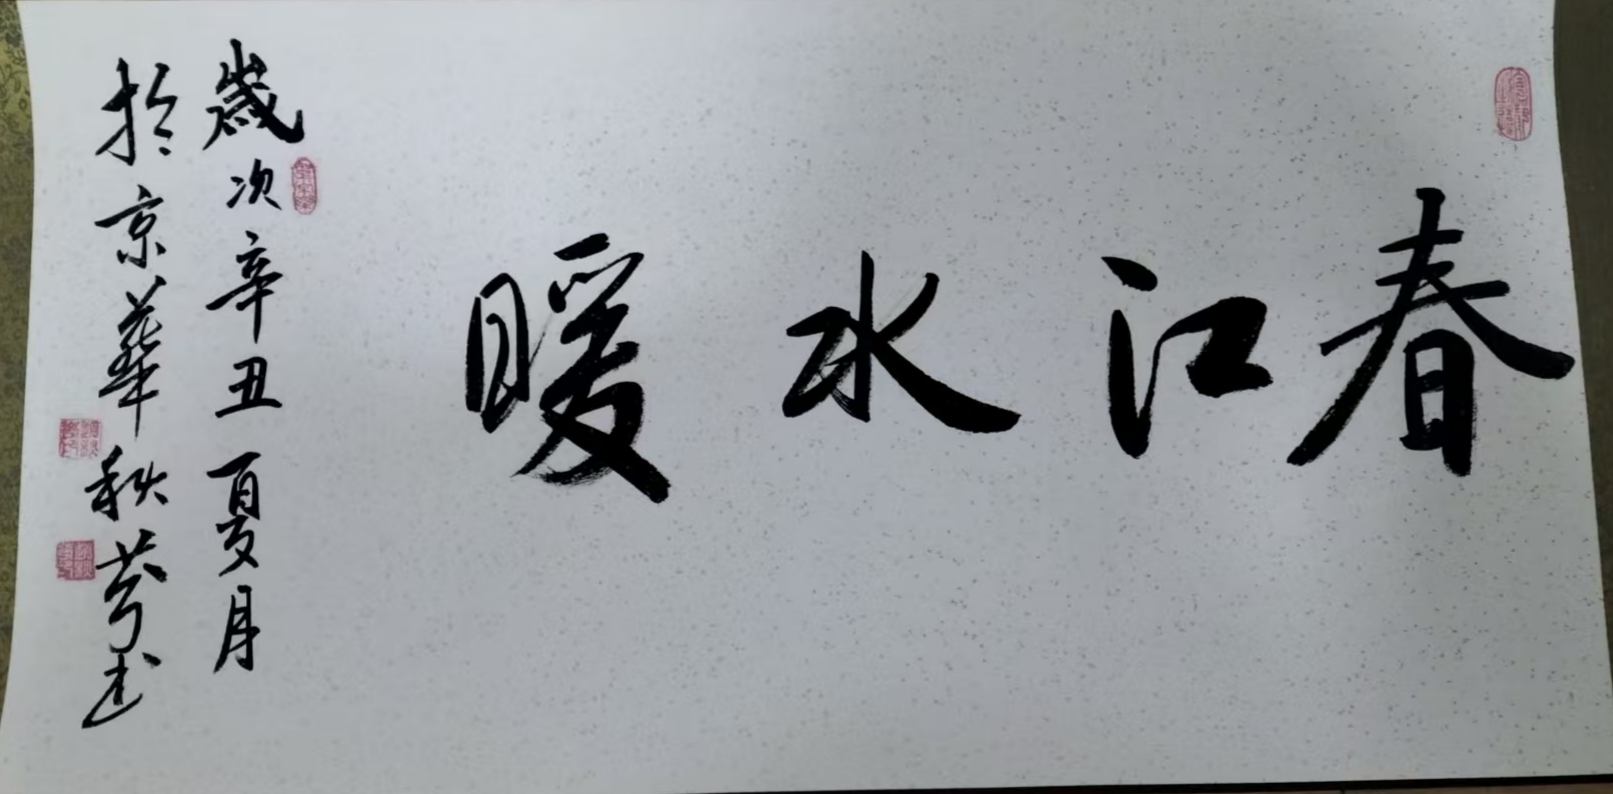 春江水暖
歲次辛丑夏月
於京華秋芬书